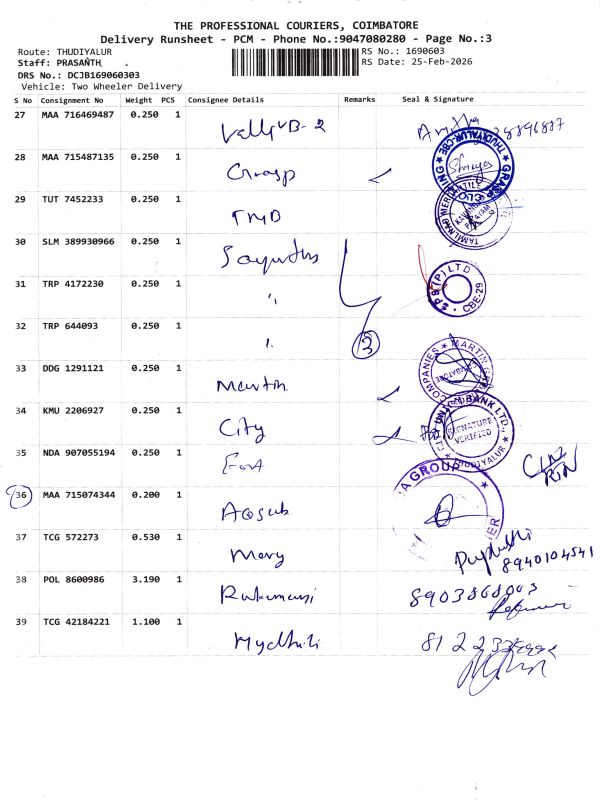 THE PROFESSIONAL COURIERS, COIMBATORE
Delivery Runsheet - PCM - Phone No.:9047080280 - Page No.:3
Route: THUDIYALUR
RS No.: 1690603
Staff: PRASANTH .
RS Date: 25-Feb-2026
DRS No.: DCJB169060303
Vehicle: Two Wheeler Delivery
S No Consignment No Weight PCS Consignee Details Remarks Seal & Signature
27 MAA 716469487 0.250 1
28 MAA 715487135 0.250 1 Grasp
GRASP CLOTHING THUDIYALUR-CBE
29 TUT 7452233 0.250 1 TMB
TAMILNAD MERCANTILE
30 SLM 389930966 0.250 1
31 TRP 4172230 0.250 1 "
SPS (P) LTD CBE-29
32 TRP 644093 0.250 1 "
3
33 DDG 1291121 0.250 1 Martin
MARTIN COMPANIES COIMBATORE
34 KMU 2206927 0.250 1 City
UNION BANK LTD. SIGNATURE VERIFIED THUDIYALUR
35 NDA 907055194 0.250 1
36 MAA 715074344 0.200 1
GROUP
37 TCG 572273 0.530 1 Mary
8940104541
38 POL 8600986 3.190 1
39 TCG 42184221 1.100 1 Mydhili